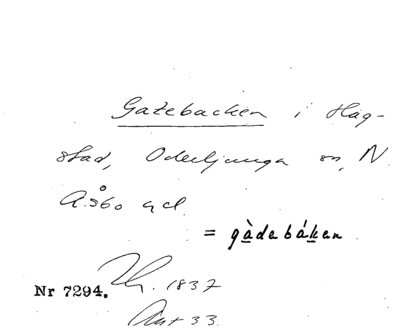 Gatebacken i Hag-
stad, Oderljunga sn, N.
Åsbo hd.
= gàdebáken
Nr 7294. 1837
33.